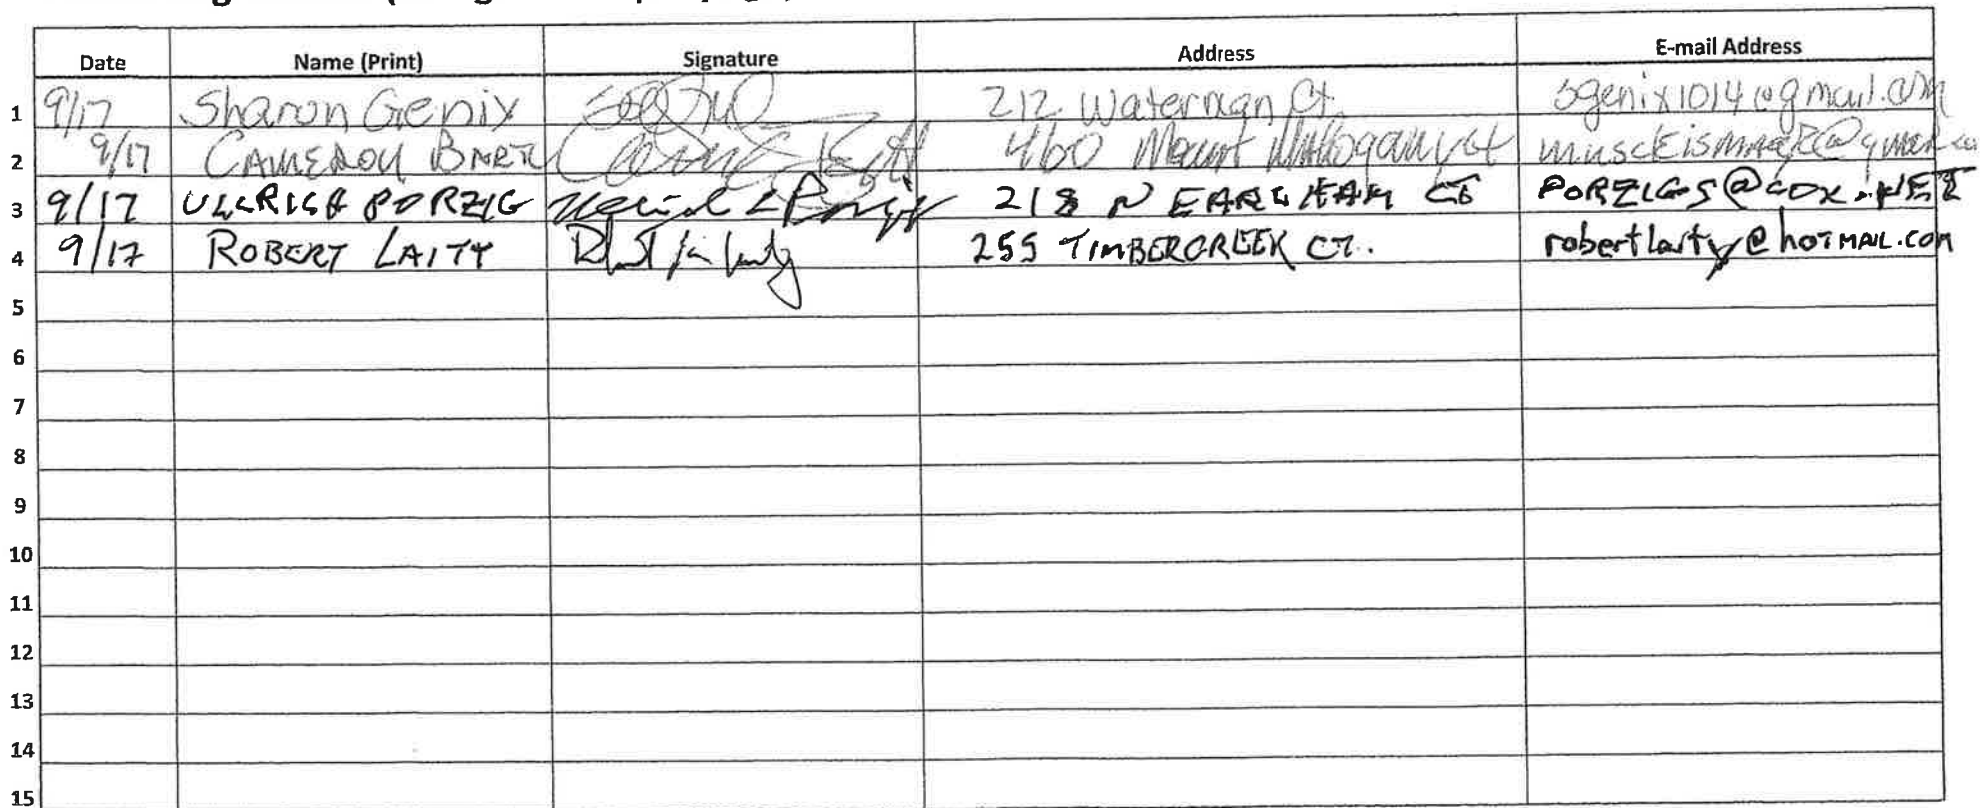 Date Name (Print) Signature Address E-mail Address
1 9/17 Sharon Genix 212 Waterman Ct. sgenix1014@gmail.com
2 9/17 CAMERON 460 Mount Mahogany Ct
3 9/17 ULLRICH PORZIG 218 N EARLHAM CT PORZIGS@COX.NET
4 9/17 ROBERT LAITY 255 TIMBERCREEK CT. robertlaity@hotmail.com
5
6
7
8
9
10
11
12
13
14
15